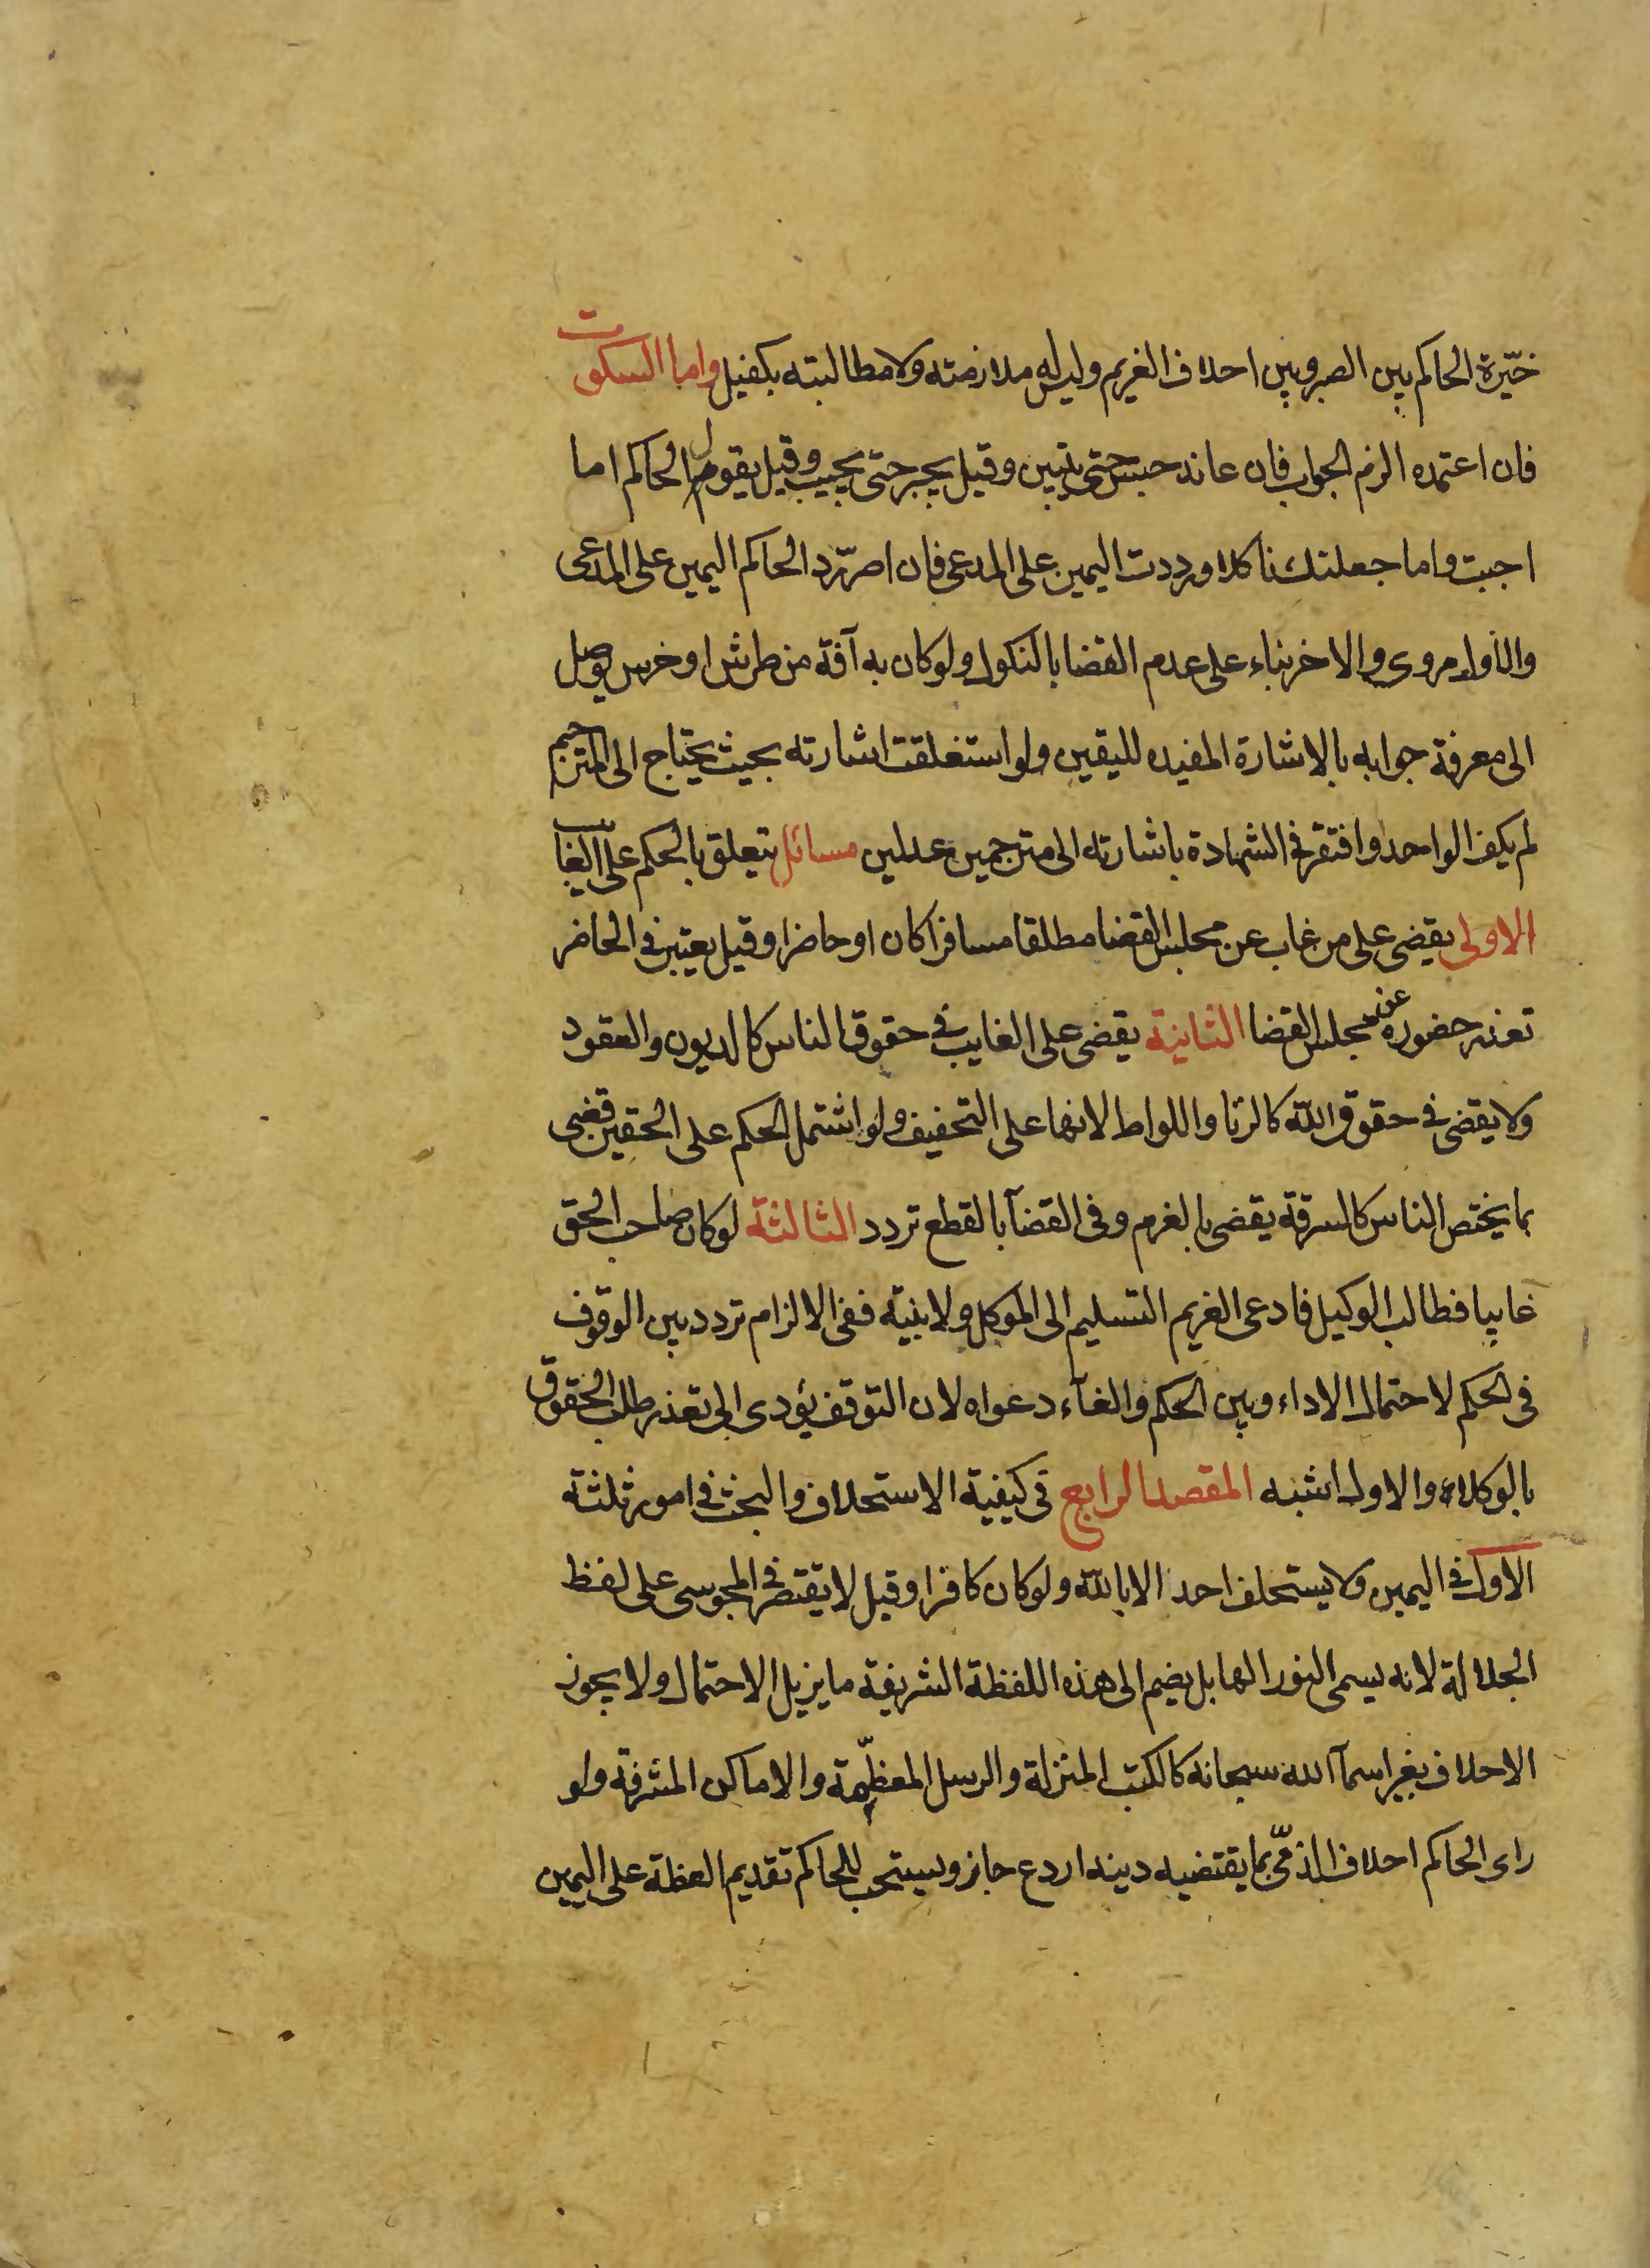 خيّرة الحاكم بين الصبر وبين احلاف الغريم وليس له ملازمته ولا مطالبته بكفيل واما السكوت
فان اعتمده الزم الجواب فان عاند حبس حتى يتبين وقيل يجبر حتى يجيب وقيل يقول الحاكم اما
اجبت واما جعلتك ناكلا ورددت اليمين على المدعى فان اصرّ رد الحاكم اليمين على المدعى
والاول مروى والاخر بناء على عدم القضا بالنكول ولو كان به آفة من طرش او خرس توصل
الى معرفة جوابه بالاشارة المفيده لليقين ولو استغلقت اشارته بحيث يحتاج الى المترجم
لم يكف الواحد وافتقر فى الشهادة باشارته الى مترجمين عدلين مسائل تتعلق بالحكم على الغايب
الاولى يقضى على من غاب عن مجلس القضا مطلقا مسافرا كان او حاضرا وقيل يعتبر فى الحاضر
تعذر حضوره عند مجلس القضا الثانية يقضى على الغايب فى حقوق الناس كالديون والعقود
ولا يقضى فى حقوق الله كالزنا واللواط لانها على التخفيف ولو اشتمل الحكم على الحقين قضى
بما يختص الناس كالسرقة يقضى بالغرم وفى القضآ بالقطع تردد الثالثة لو كان صاحب الحق
غايبا فطالب الوكيل فادعى الغريم التسليم الى الموكل ولا بنيّة ففى الالزام تردد بين الوقوف
فى الحكم لاحتمال الاداء وبين الحكم والغآء دعواه لان التوقف يؤدى الى تعذر طلب الحقوق
بالوكلاء والاول اشبه المقصد الرابع فى كيفية الاستحلاف والبحث فى امور ثلثة
الاول فى اليمين ولا يستحلف احد الا بالله ولو كان كافرا وقيل لا يقتصر فى المجوسى على لفظ
الجلالة لانه يسمى النور الها بل يضم الى هذه اللفظة الشريفة ما يزيل الاحتمال ولا يجوز
الاحلاف بغير اسمآ الله سبحانه كالكتب المنزلة والرسل المعظّمة والاماكن المشرفة ولو
راى الحاكم احلاف الذمّى بما يقتضيه دينه اردع جاز ويستحب للحاكم تقديم العظة على اليمين